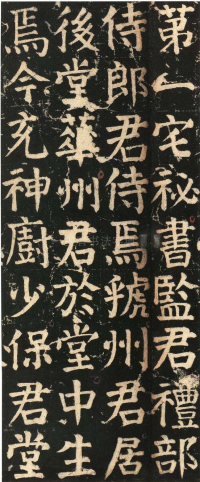 第一宅祕書監君禮部
侍郎君侍焉虢州君居
後堂華州君於堂中生
焉今充神廚少保君堂